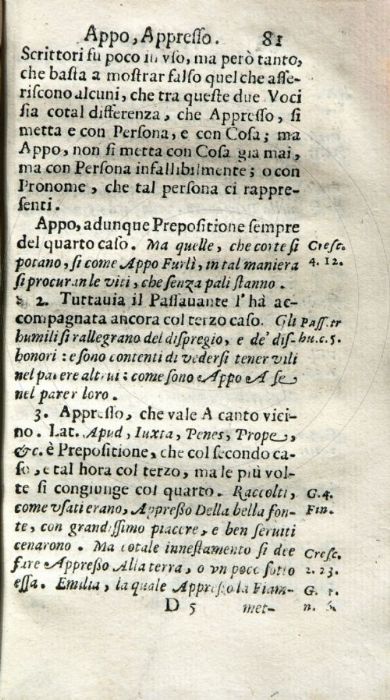 Appo, Appresso. 81
Scrittori fu poco in vso, ma però tanto,
che basta a mostrar falso quel che asse-
riscono alcuni, che tra queste due Voci
sia cotal differenza, che Appresso, si
metta e con Persona, e con Cosa; ma
Appo, non si metta con Cosa gia mai,
ma con Persona infallibilmente; o con
Pronome, che tal persona ci rappre-
senti.
Appo, adunque Prepositione sempre
del quarto caso. Ma quelle, che corte si Cresc.
potano, si come Appo Furlì, in tal maniera 4. 12.
si procuran le viti, che senza pali stanno.
2. Tuttauia il Passauante l'hà ac-
compagnata ancora col terzo caso. Gli Pass. tr
humili si rallegrano del dispregio, e de' dis- hu. c. 5.
honori: e sono contenti di vedersi tener vili
nel parere altrui: come sono Appo A se
nel parer loro.
3. Appresso, che vale A canto vici-
no. Lat. Apud, Iuxta, Penes, Prope,
&c. è Prepositione, che col secondo ca-
so, e tal hora col terzo, ma le più vol-
te si congiunge col quarto. Raccolti, G. 4.
come vsati erano, Appresso Della bella fon- Fin.
te, con grandissimo piacere, e ben seruiti
cenarono. Ma cotale innestamento si dee Cresc.
fare Appresso Alla terra, o vn poco sotto 2. 23.
essa. Emilia, la quale Appresso la Fiam- G. 1.
D 5 met- n. 6.